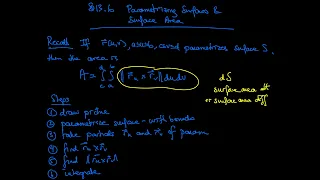 §15.6 Parametrizing Surfaces &
Surface Area
Recall If r(u,v), a≤u≤b, c≤v≤d parametrizes surface S,
then the area is
A = ∫_c^d ∫_a^b ‖ r_u × r_v ‖ du dv
dS
surface area
or surface area diff
Steps
① draw picture
② parametrize surface - with bounds
③ take partials r_u and r_v of param
④ find r_u × r_v
⑤ find ‖ r_u × r_v ‖
⑥ integrate